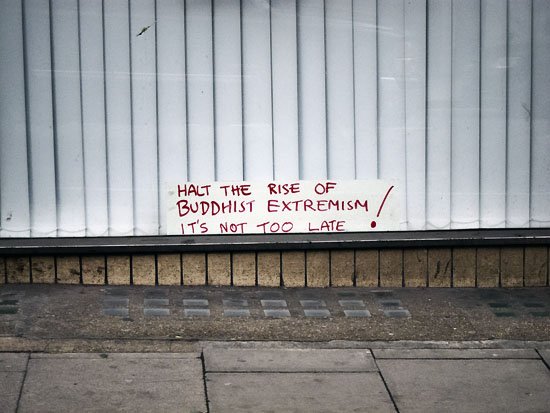 HALT THE RISE OF
BUDDHIST EXTREMISM!
IT'S NOT TOO LATE